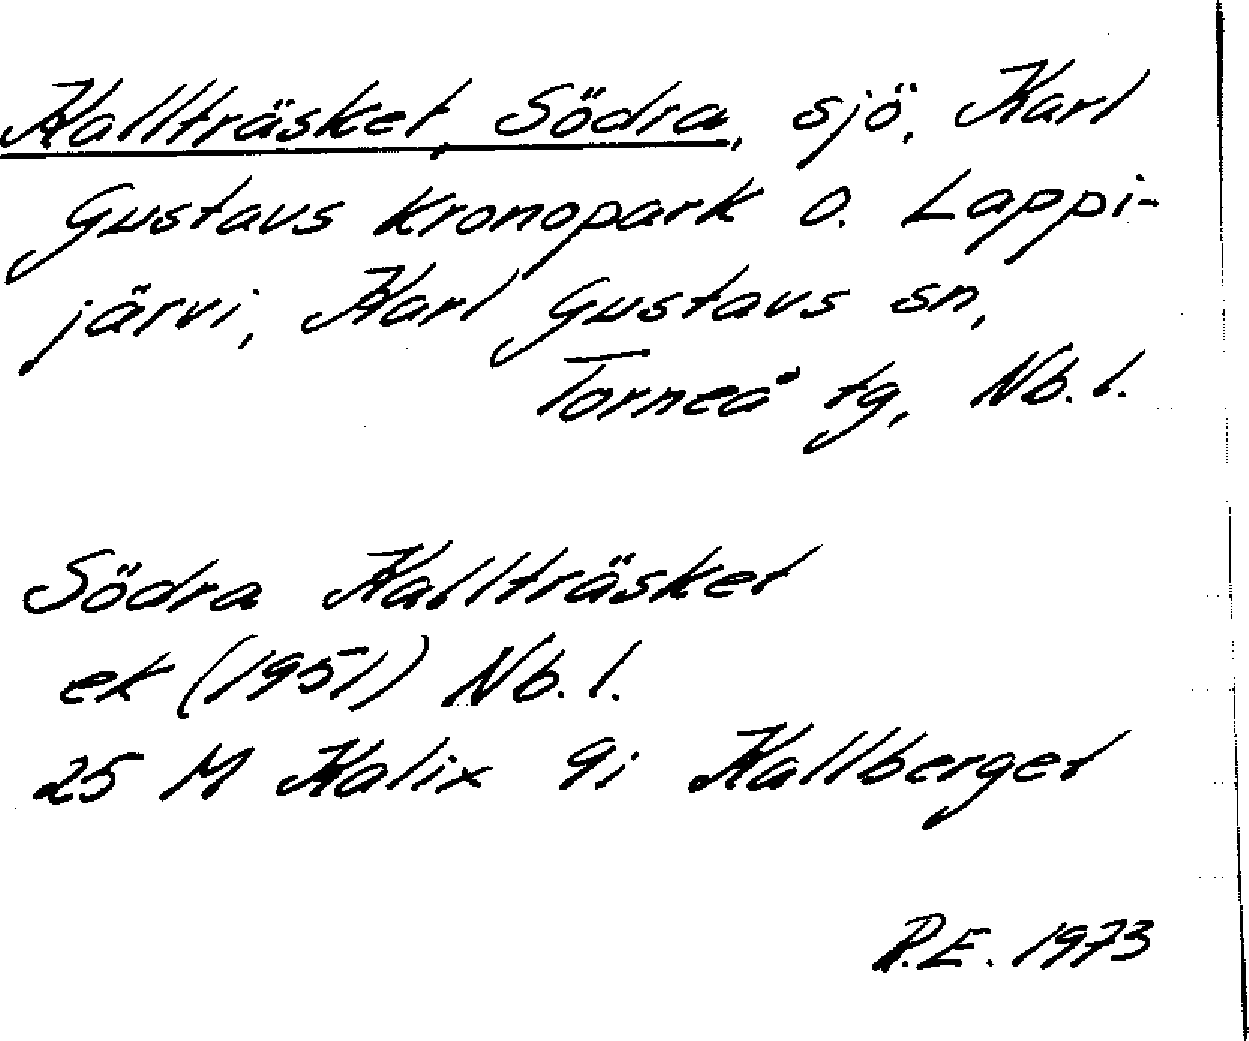 Kallträsket, Södra, sjö, Karl
Gustavs kronopark o. Lappi-
järvi, Karl Gustavs sn,
Torneå tg, Nb. l.
Södra Kallträsket
ek (1951) Nb. l.
25 M Kalix 9i Kallberget
P.E. 1973